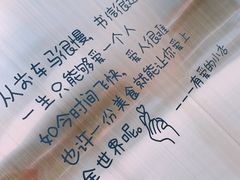 从前车马很慢 书信很远
一生只能够爱一个人
如今时间飞快 爱人很难
也许一份美食就能让你爱上
全世界
---有爱的小店